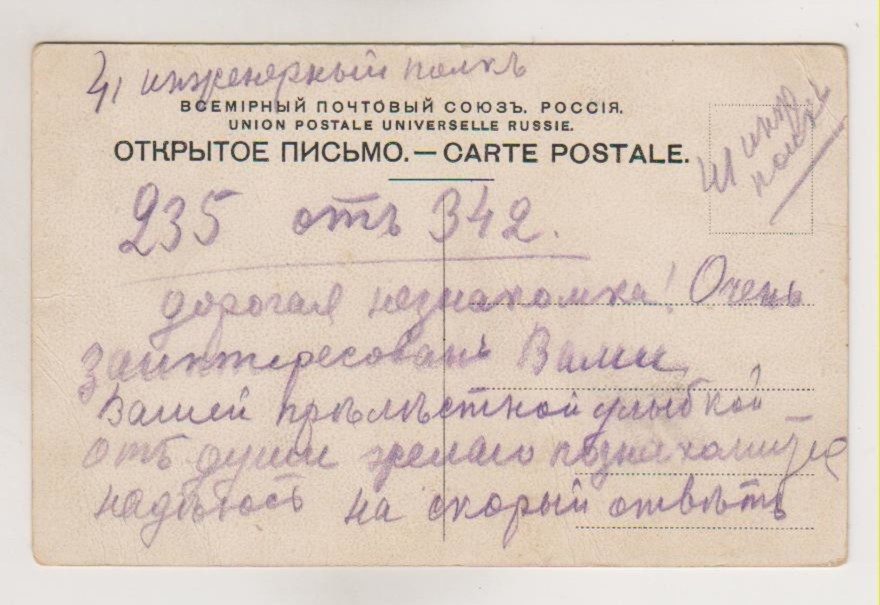 41 инженерный полкъ
ВСЕМІРНЫЙ ПОЧТОВЫЙ СОЮЗЪ. РОССІЯ.
UNION POSTALE UNIVERSELLE RUSSIE.
ОТКРЫТОЕ ПИСЬМО.—CARTE POSTALE.
41 инж
полкъ
235 отъ 342.
дорогая незнакомка! Очень
заинтересованъ Вами
Вашей прѣлѣстной улыбкой
отъ души желаю познакомится
надѣюсь на скорый отвѣтъ